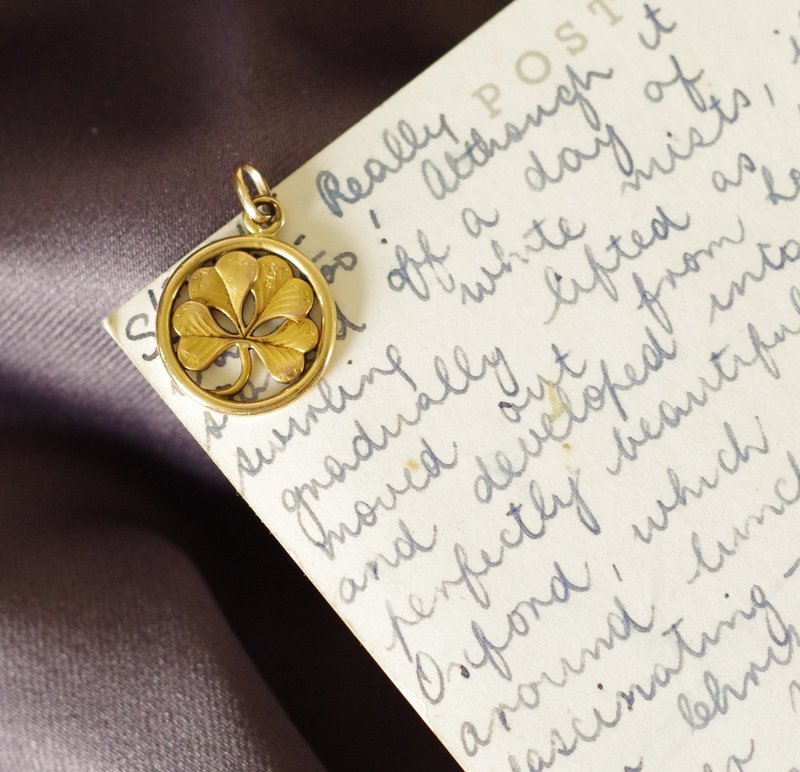 POST
Really
! Although it
off a day of
white mists,
swirling lifted as
gradually from
moved out into
and developed
perfectly beautiful
Oxford, which
around lunch
fascinating -